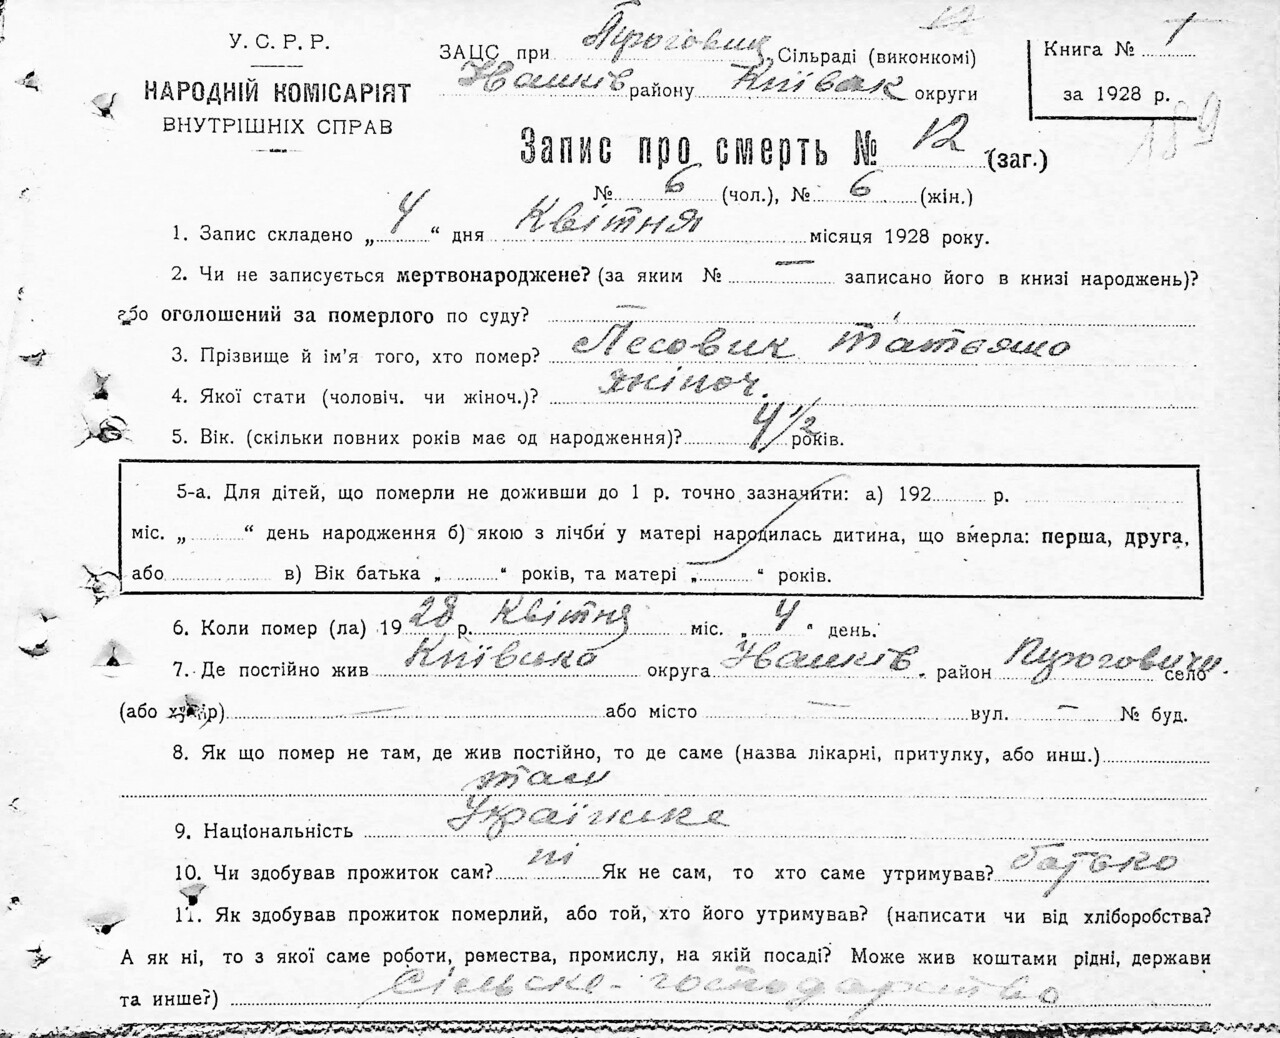 У. С. Р. Р.
НАРОДНІЙ КОМІСАРІЯТ
ВНУТРІШНІХ СПРАВ
12
ЗАЦС при Пироговиц. Сільраді (виконкомі)
Іванків району Київськ округи
Книга № 1
за 1928 р.
189
Запис про смерть № 12 (заг.)
№ 6 (чол.), № 6 (жін.)
1. Запис складено „ 4 “ дня Квітня місяця 1928 року.
2. Чи не записується мертвонароджене? (за яким № — записано його в книзі народжень)?
або оголошений за померлого по суду?
3. Прізвище й ім’я того, хто помер? Лесовик Татьяно
4. Якої стати (чоловіч. чи жіноч.)? жіноч.
5. Вік. (скільки повних років має од народження)? 4 1/2 років.
5-а. Для дітей, що померли не доживши до 1 р. точно зазначити: а) 192 р.
міс. „ “ день народження б) якою з лічби у матері народилась дитина, що вмерла: перша, друга,
або в) Вік батька „ “ років, та матері „ “ років.
6. Коли помер (ла) 1928 р. Квітня міс. „ 4 “ день.
7. Де постійно жив Київсько округа Іванків. район Пироговичи. село
(або хутір) — або місто — вул. — № буд.
8. Як що помер не там, де жив постійно, то де саме (назва лікарні, притулку, або инш.)
там
9. Національність Українське
10. Чи здобував прожиток сам? ні Як не сам, то хто саме утримував? батько
11. Як здобував прожиток померлий, або той, хто його утримував? (написати чи від хліборобства?
А як ні, то з якої саме роботи, ремества, промислу, на якій посаді? Може жив коштами рідні, держави
та инше?) Сільске-господарство